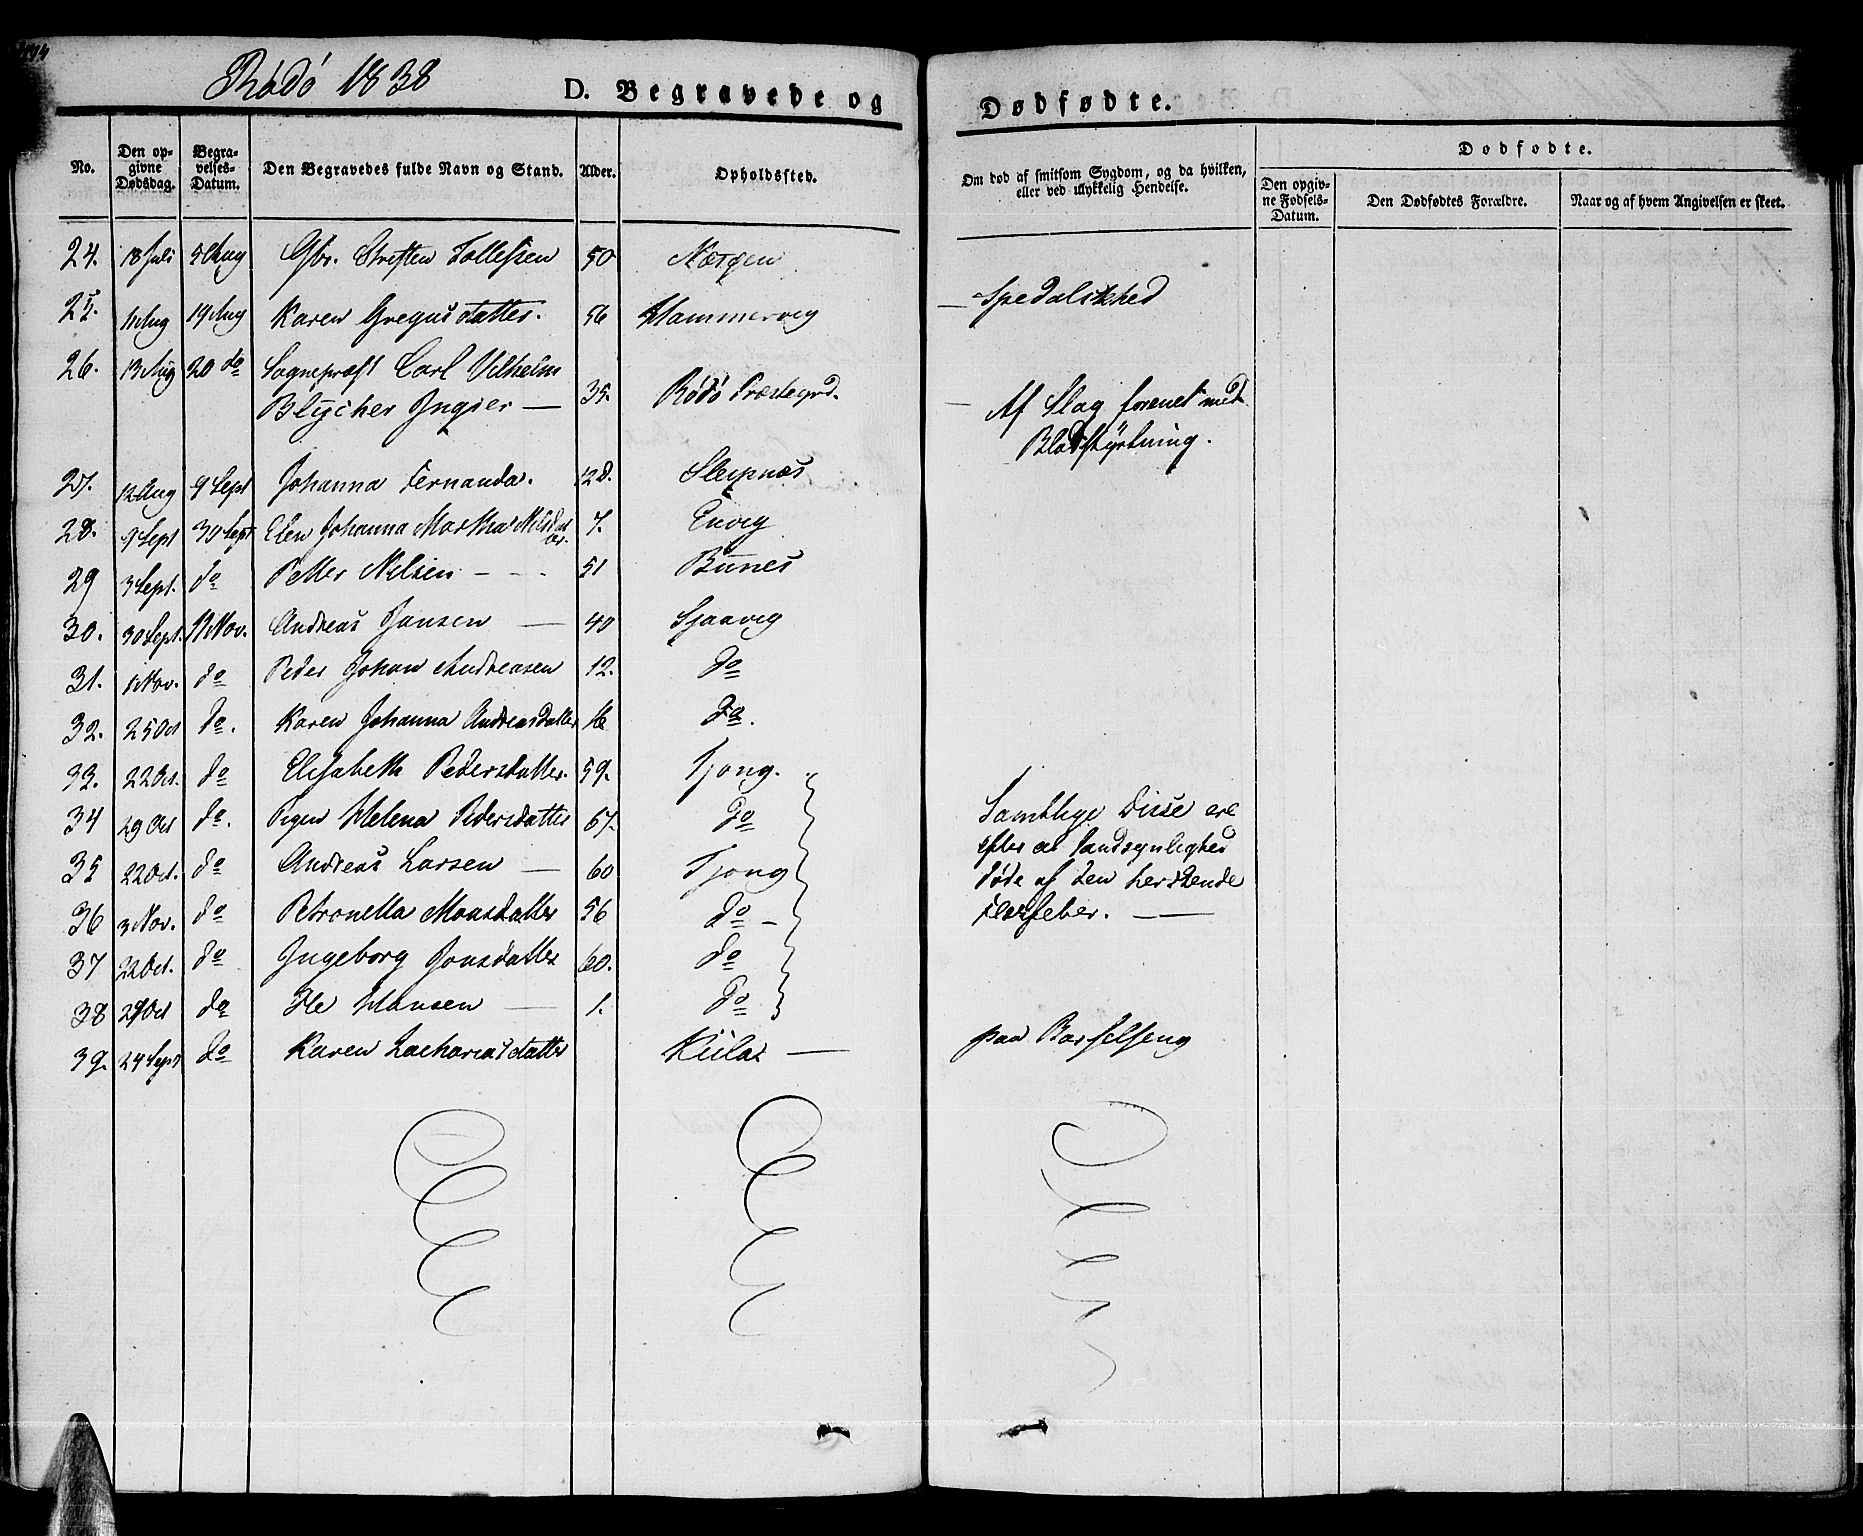 Rödö 1838
D. Begravede og Dødfødte.
No.
Den opgivne Dødsdag.
Begravelses-Datum.
Den Begravedes fulde Navn og Stand.
Alder.
Opholdssted.
Om død af smitsom Sygdom, og da hvilken, eller ved ulykkelig Hendelse.
Dødfødte.
Den opgivne Fødsels-Datum.
Den Dødfødtes Forældre.
Naar og af hvem Angivelsen er skeet.
24. 18 Juli 5 Aug Gbr. Tollefsen 50
25. 11 Aug 19 Aug Karen Gregusdatter. 56 Hammervig — Spedalskhed
26. 13 Aug 20 do Sognepræst Carl Vilhelm
Blycher Ingier — 35. Rödö Præstegrd. — Af Slag forenet med
Blodstyrtning.
27. 12 Aug 9 Sept Johanna Fernanda. 12 d. Sleipnæs
28. 9 Sept 30 Sept Elen Johanna Martha Nilsdat
er. 7. Envig
29 3 Sept. do Petter Nilsen - - - 51 Bunes
30. 30 Sept. 11 Nov. Andreas Jansen — 40 Sjaavig
31. 1 Nov. do Peder Johan Andreasen 12. do
32. 25 Oct do. Karen Johanna Andreasdatter 16 do.
33. 22 Oct. do Elisabeth Pedersdatter. 59. Tjong.
34 29 Oct do. Pigen Helena Pedersdatter 67. do Samtlige Disse ere
efter al Sandsynlighed
35 22 Oct. do Andreas Larsen — 60 Tjong døde af den herskende
36 3 Nov. do Petronella Monsdatter 56 do - feber. —
37 22 Oct. do Ingeborg Jonsdatter 60. do
38 29 Oct do Ole Hansen — 1. do
39. 24 Sept do Karen Zachariasdatter Kiila — paa Barselseng